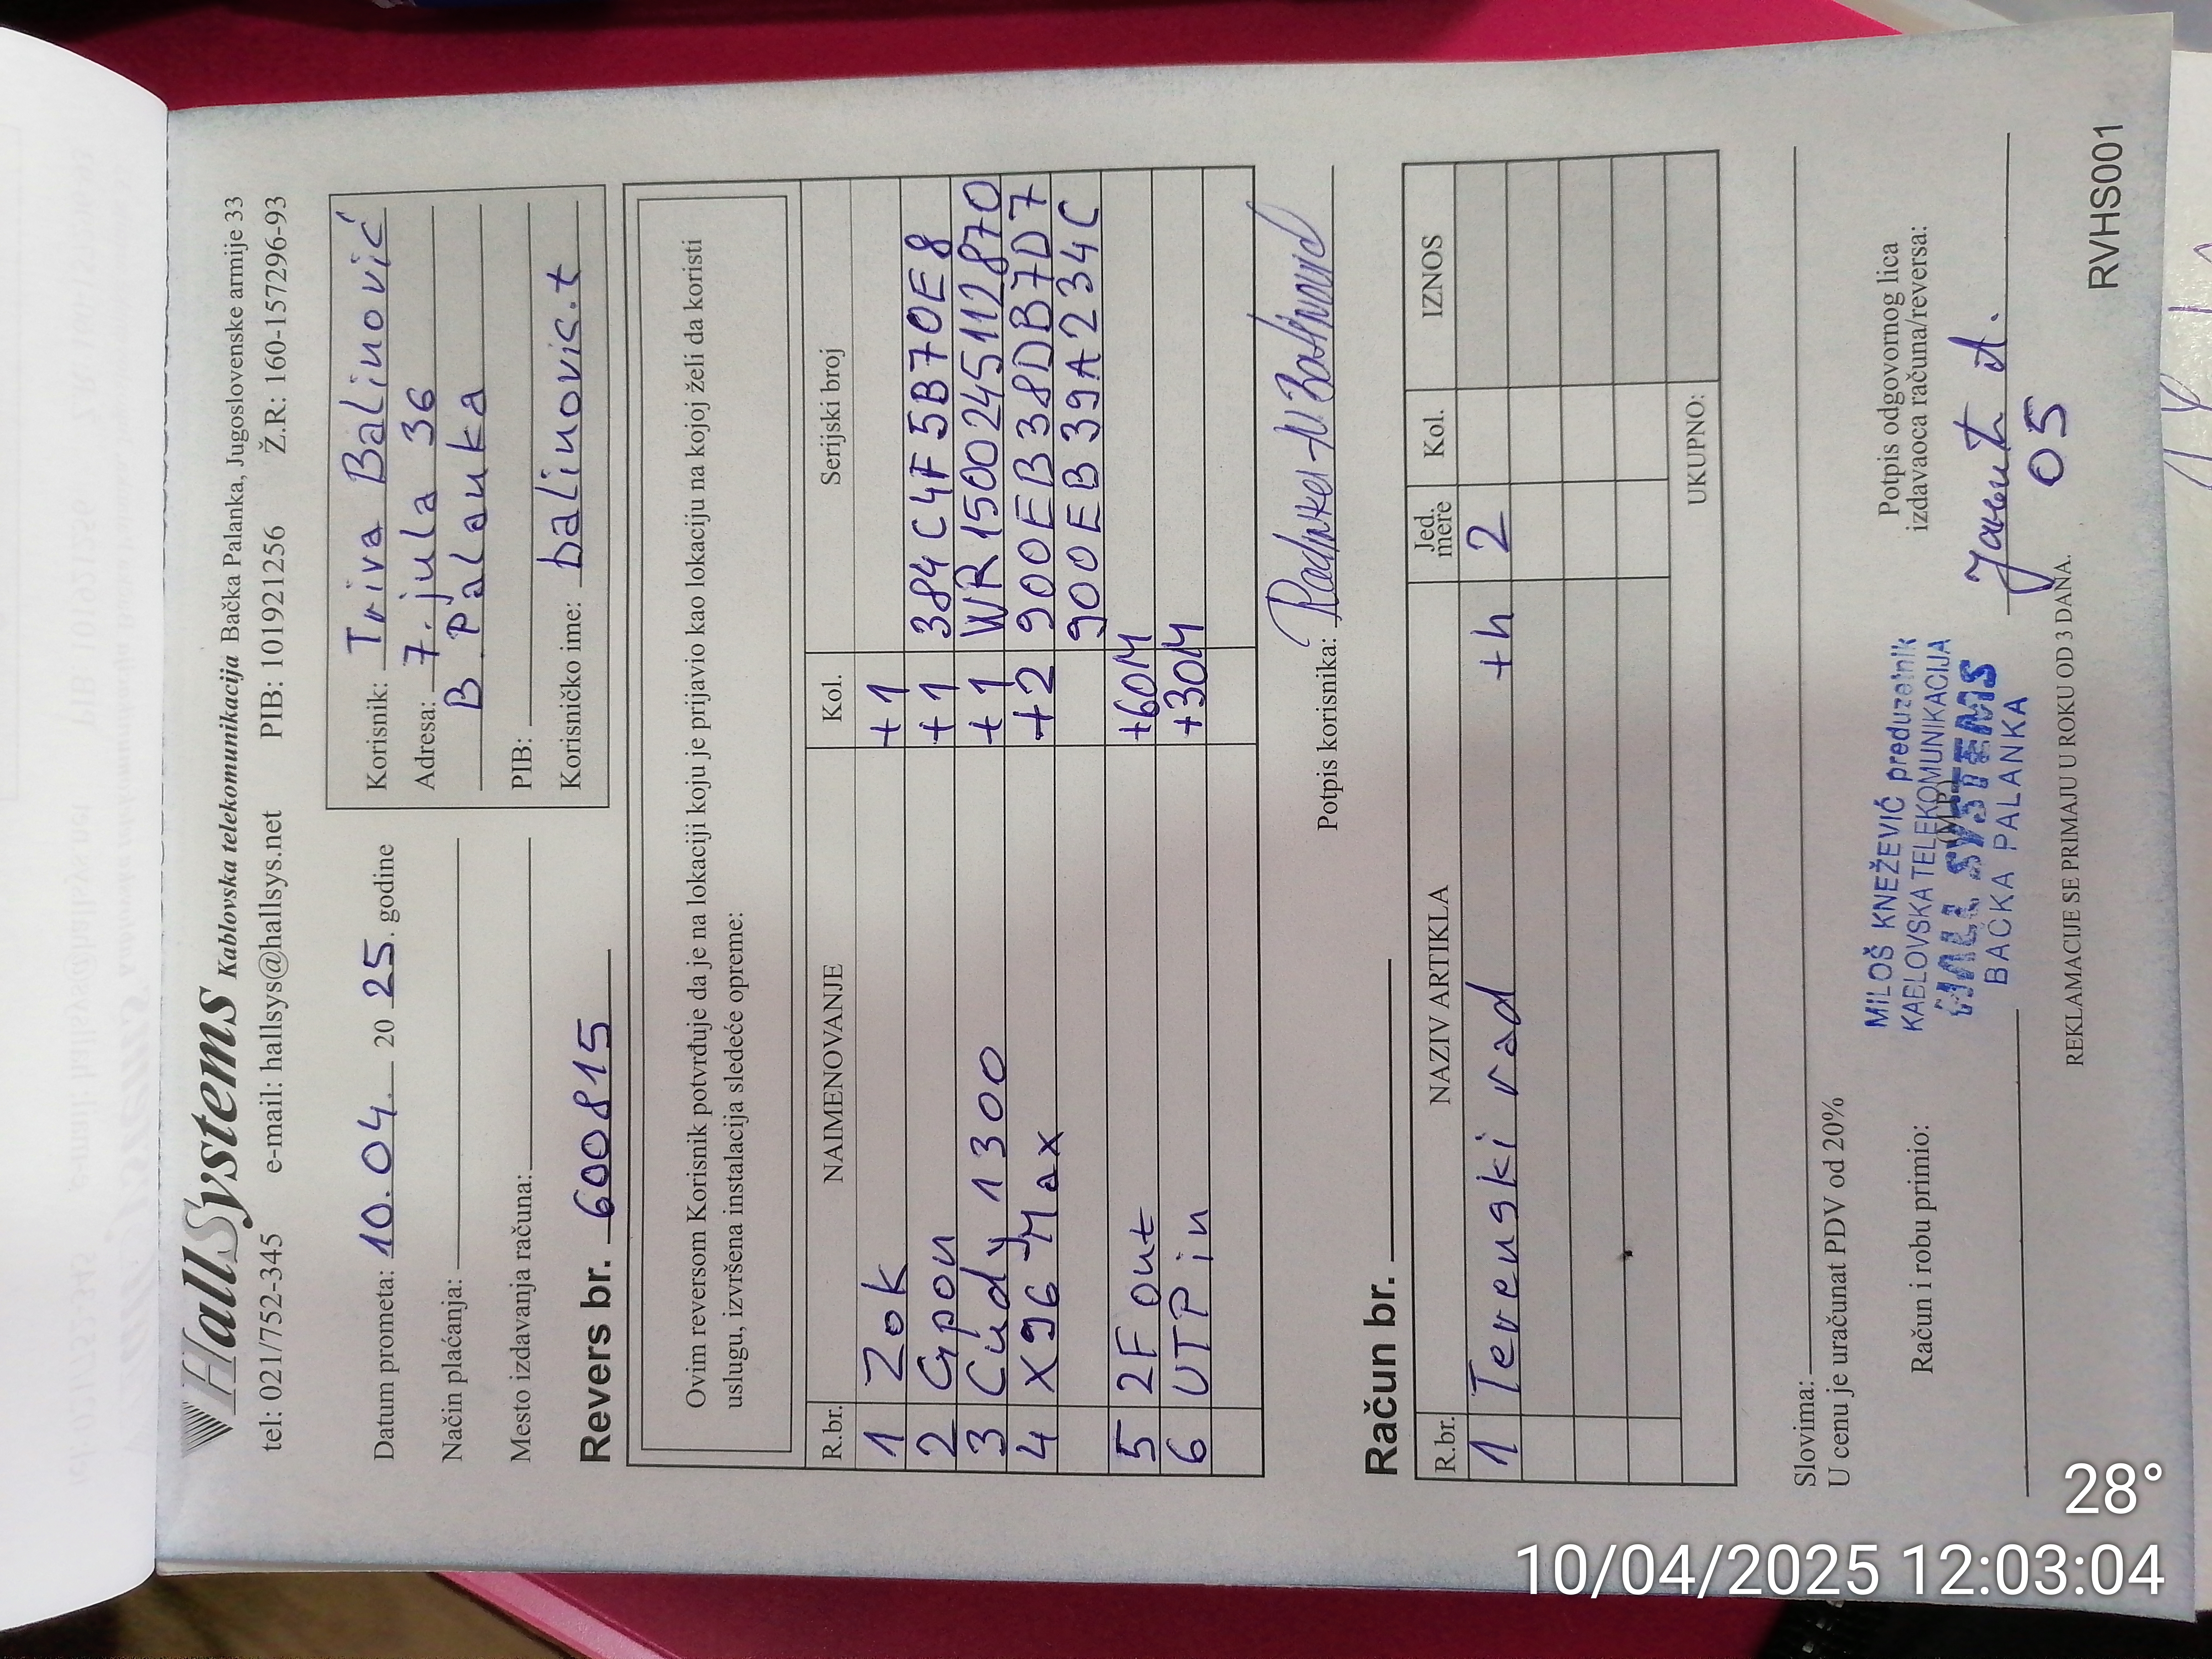 HallSystems Kablovska telekomunikacija Bačka Palanka, Jugoslovenske armije 33
tel: 021/752-345 e-mail: hallsys@hallsys.net PIB: 101921256 Ž.R: 160-157296-93
Datum prometa: 10.04. 20 25. godine
Način plaćanja:
Mesto izdavanja računa:
Korisnik: Triva Balinović
Adresa: 7. jula 36
B Palanka
PIB:
Korisničko ime: balinovic.t
Revers br. 600815
Ovim reversom Korisnik potvrđuje da je na lokaciji koju je prijavio kao lokaciju na kojoj želi da koristi
uslugu, izvršena instalacija sledeće opreme:
R.br. NAIMENOVANJE Kol. Serijski broj
1 Zok +1
2 Gpon +1 384C4F5B70E8
3 Cudy 1300 +1 WR1500245112870
4 X96 Max +2 900EB38DB7D7
900EB39A234C
5 2F out +60M
6 UTP in +30M
Potpis korisnika:
Račun br.
R.br. NAZIV ARTIKLA Jed. mere Kol. IZNOS
1 Terenski rad +h 2
UKUPNO:
Slovima:
U cenu je uračunat PDV od 20%
Račun i robu primio:
(M.P.)
Potpis odgovornog lica
izdavaoca računa/reversa:
MILOŠ KNEŽEVIĆ preduzetnik
KABLOVSKA TELEKOMUNIKACIJA
HALL SYSTEMS
BAČKA PALANKA
05
REKLAMACIJE SE PRIMAJU U ROKU OD 3 DANA.
RVHS001
28°
10/04/2025 12:03:04